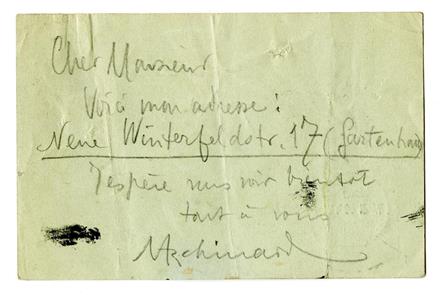 Cher Monsieur
Voici mon adresse:
Neue Winterfeldstr. 17 (Gartenhaus)
J'espère vous voir bientot
tout à vous